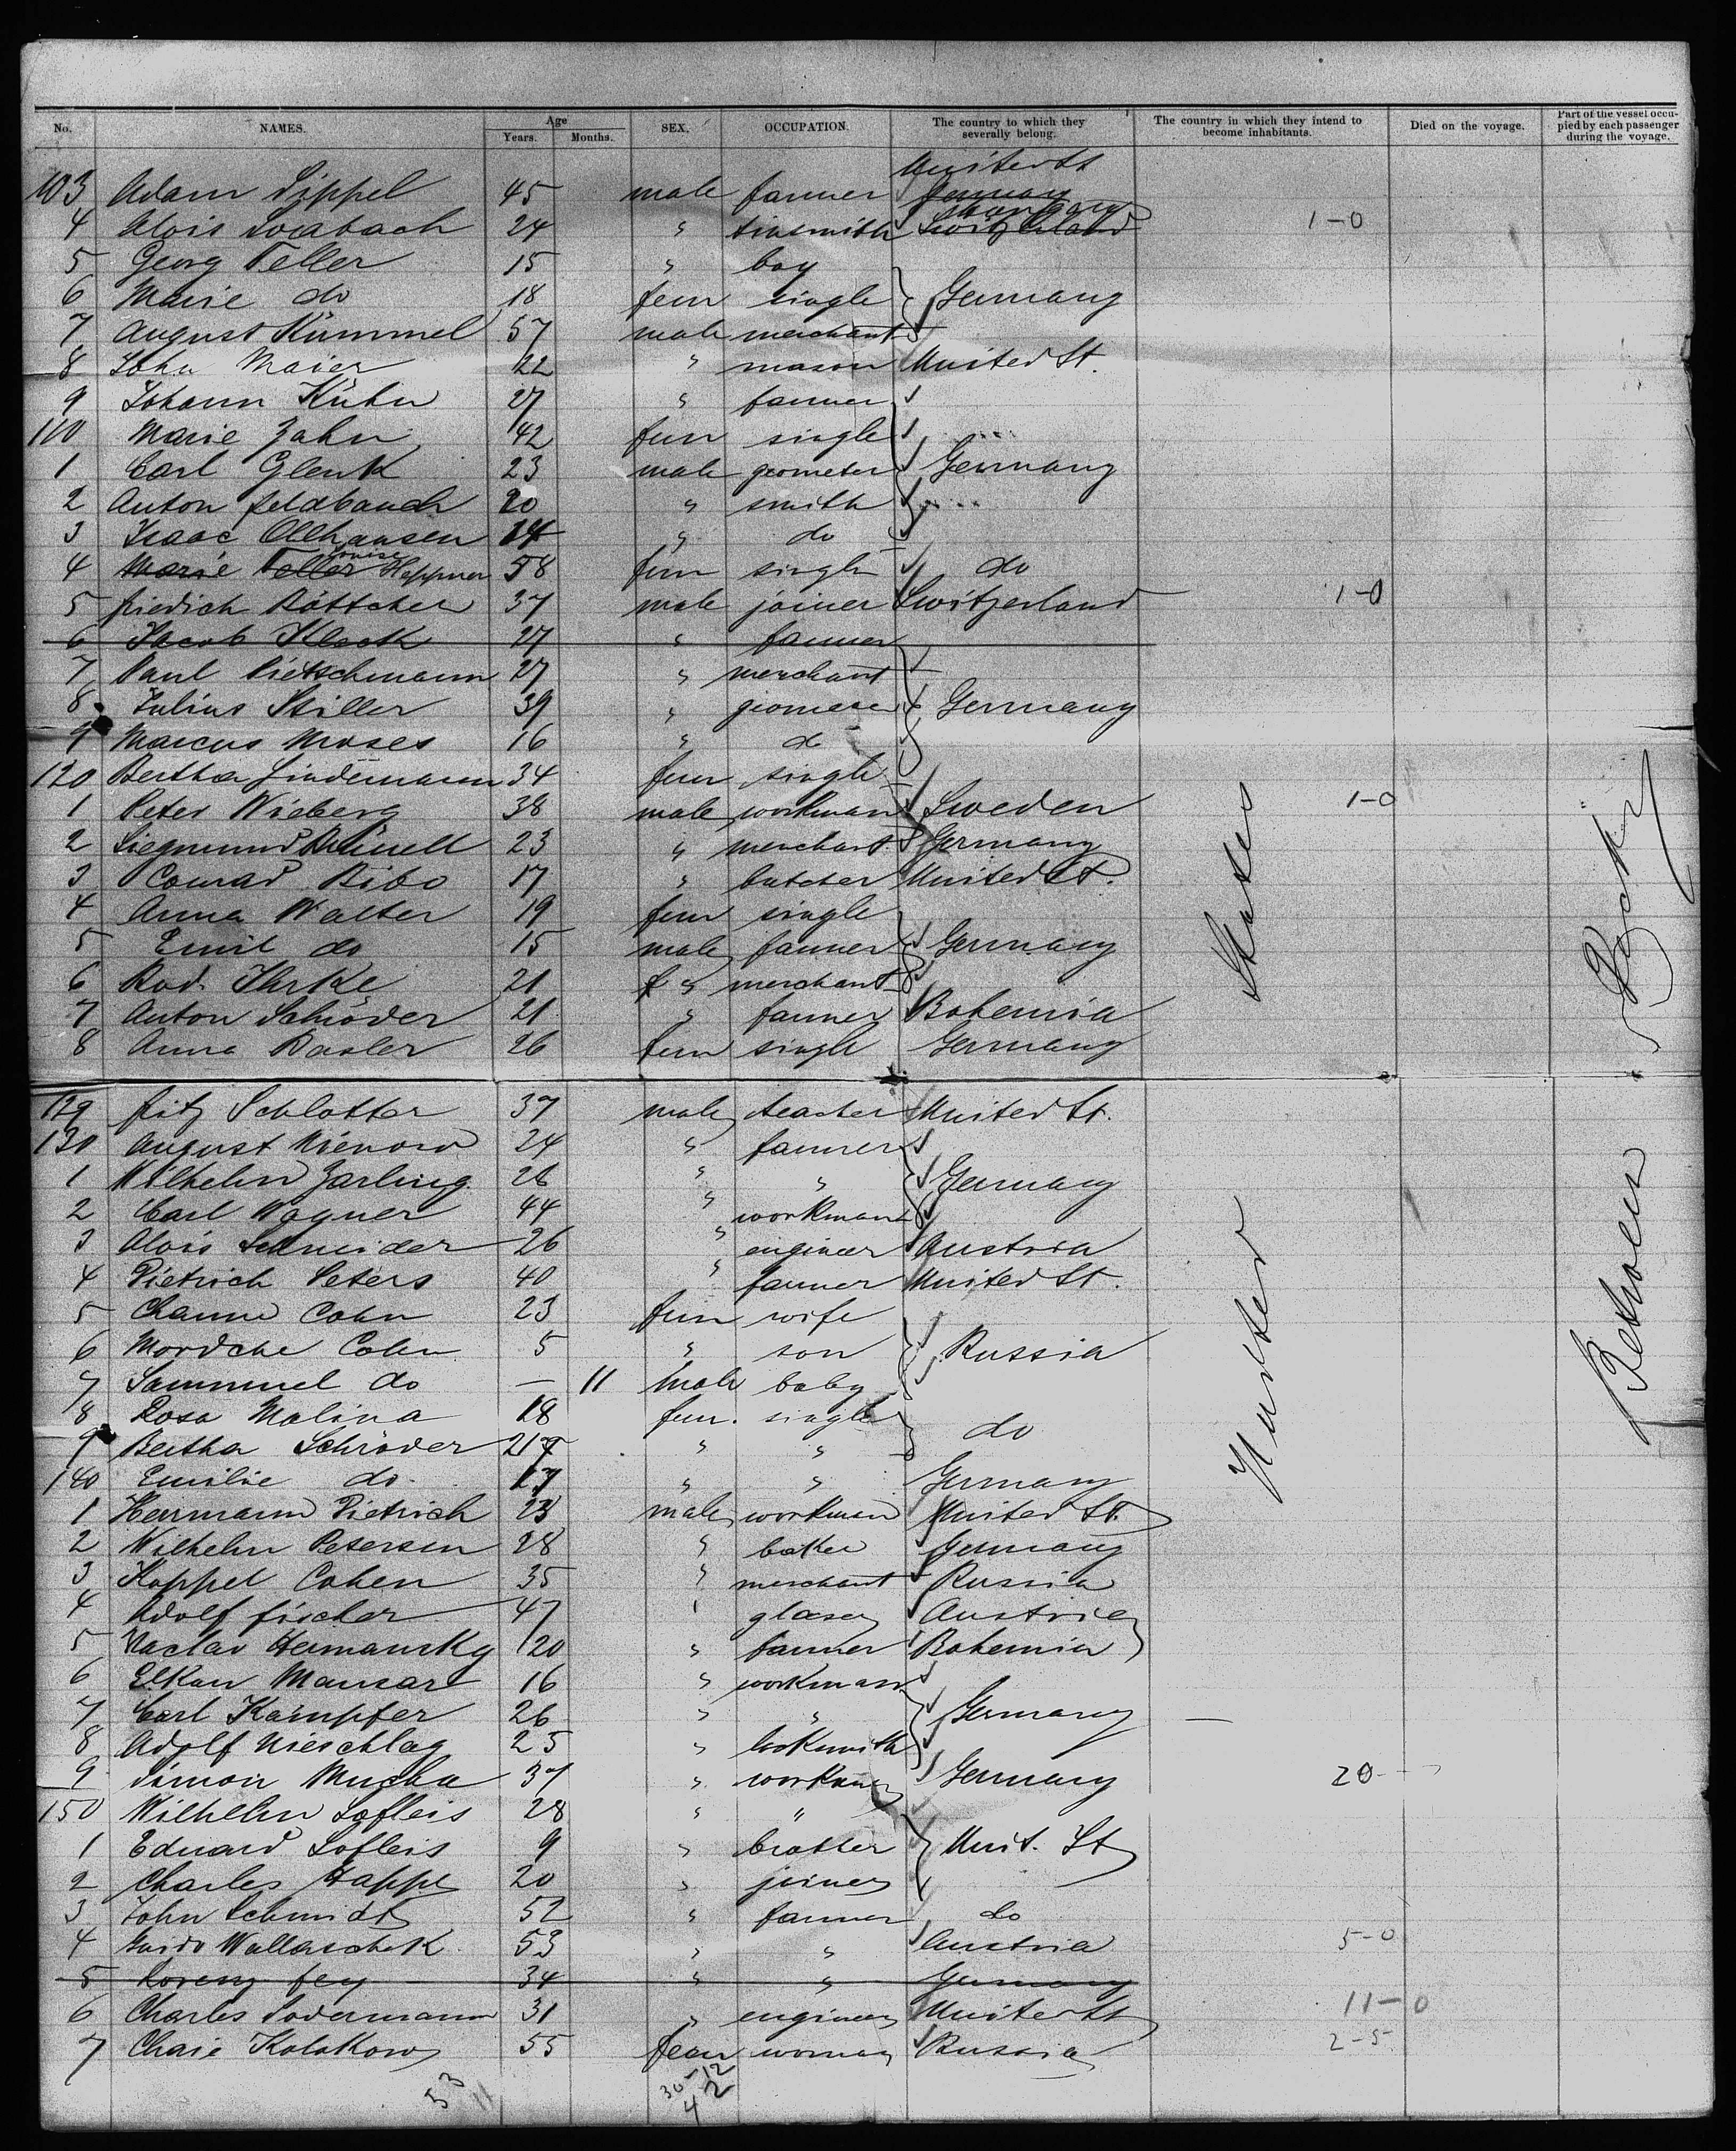 No. NAMES. Age Years. Months. SEX. OCCUPATION. The country to which they severally belong. The country in which they intend to become inhabitants. Died on the voyage. Part of the vessel occupied by each passenger during the voyage.
United St
103 Adam Sippel 45 male farmer Germany
4 Alois 24 " tinsmith Switzerland 1-0
5 Georg Feller 15 " boy
6 Marie do 18 fem single Germany
7 August Kümmel 57 male merchant
8 John Maier 22 " mason United St.
9 Johann Kühn 27 " farmer
110 Marie Zahn 42 fem single
1 Carl Glenk 23 male geometer Germany
2 Anton Feldbauch 20 " smith
3 Isaac Ollhausen 14 " do
4 Marie Feller Louise Heppner 58 fem single do
5 Friedich Böttcher 37 male joiner Switzerland 1-0
6 Jacob Kleck 27 " farmer
7 Paul Pietschmann 27 " merchant
8 Julius Stiller 39 " geometer Germany
9 Marcus Moses 16 " do
120 Bertha Lindemann 34 fem single
1 Peter Wieberg 38 male workman Sweden 1-0
2 Siegmund 23 " merchant Germany
3 Conrad Bibo 17 " butcher United St.
4 Anna Walter 19 fem single
5 Emil do 15 male farmer Germany
6 Rud. Ihrke 21 " merchant
7 Anton Schröder 21 " farmer Bohemia
8 Anna Basler 26 fem single Germany
129 Fritz Schlotter 37 male teacher United St.
130 August Nienow 24 " farmer
1 Wilhelm Zarling 26 " " Germany
2 Carl Wagner 44 " workman
3 Alois Schneider 26 " engineer Austria
4 Dietrich Peters 40 " farmer United St.
5 Channe Cohn 23 fem wife
6 Mordche Cohn 5 " son Russia
7 Sammuel do — 11 male baby
8 Rosa Malina 18 fem. single do
9 Bertha Schröder 21 " "
140 Emilie do. 17 " " Germany
1 Herrmann Dietrich 23 male workman United St.
2 Wilhelm Petersen 28 " baker Germany
3 Koppel Cohen 35 " merchant Russia
4 Adolf Fischer 47 " glaser Austria
5 Vaclav Hermansky 20 " farmer Bohemia
6 Elkan Mansar 16 " workman
7 Carl Kämpfer 26 " " Germany —
8 Adolf Nieschlag 25 " locksmith
9 Simon Mucha 37 " workman Germany 20
150 Wilhelm Lofleis 28 " "
1 Eduard Lofleis 9 " brother Unit. St
2 Charles Happe 20 " joiner
3 John Schmidt 52 " farmer do
4 Guido Wallaschek 53 " " Austria 5-0
5 Lorenz Fey 34 " " Germany
6 Charles Sodermann 31 " engineer United St 11-0
7 Chaie Kolakow 55 fem woman Russia 2-5
53 11 30-12
4 2
United States
Between Decks